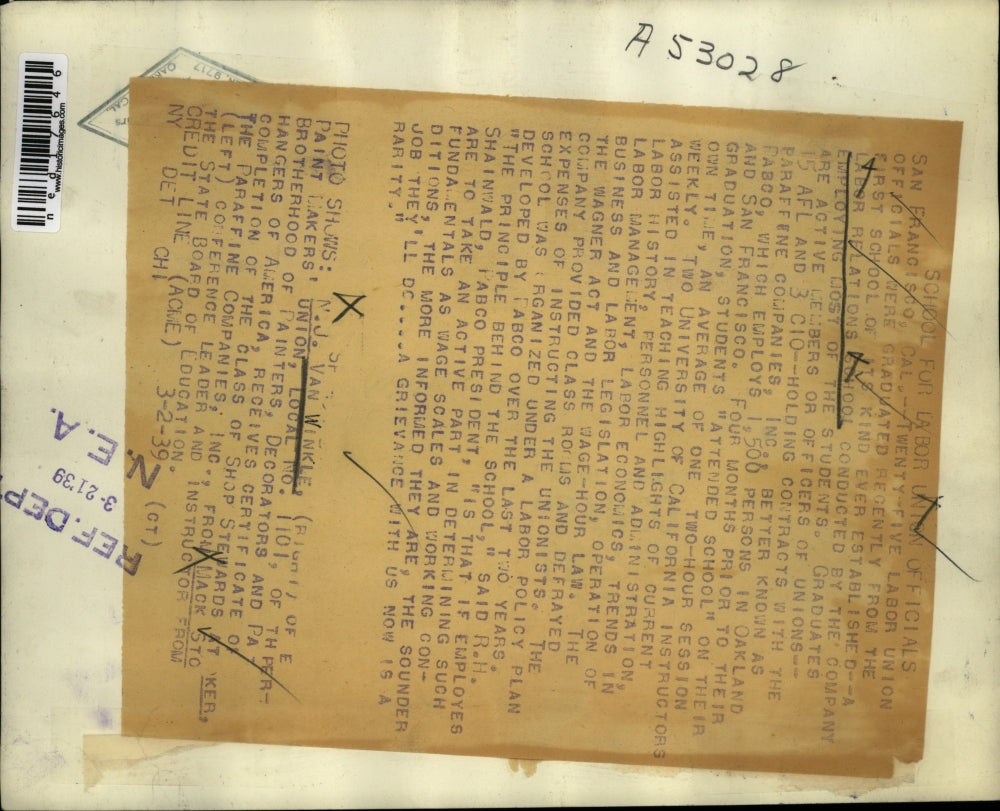 A 53028
SCHOOL FOR LABOR UNION OFFICIALS
SAN FRANCISCO, CAL.--TWENTY-FIVE LABOR UNION
OFFICIALS WERE GRADUATED RECENTLY FROM THE
FIRST SCHOOL OF ITS KIND EVER ESTABLISHED--A
LABOR RELATIONS SCHOOL CONDUCTED BY THE COMPANY
EMPLOYING MOST OF THE STUDENTS. GRADUATES
ARE ACTIVE MEMBERS OR OFFICERS OF UNIONS--
15 AFL AND 3 CIO--HOLDING CONTRACTS WITH THE
PARAFFINE COMPANIES, INC. BETTER KNOWN AS
PABCO, WHICH EMPLOYS 1,500 PERSONS IN OAKLAND
AND SAN FRANCISCO. FOUR MONTHS PRIOR TO THEIR
GRADUATION, STUDENTS "ATTENDED SCHOOL" ON THEIR
OWN TIME, AN AVERAGE OF ONE TWO-HOUR SESSION
WEEKLY. TWO UNIVERSITY OF CALIFORNIA INSTRUCTORS
ASSISTED IN TEACHING HIGHLIGHTS OF CURRENT
LABOR HISTORY, PERSONNEL AND ADMINISTRATION,
LABOR MANAGEMENT, LABOR ECONOMICS, TRENDS IN
BUSINESS AND LABOR LEGISLATION, OPERATION OF
THE WAGNER ACT AND THE WAGE-HOUR LAW. THE
COMPANY PROVIDED CLASS ROOMS AND DEFRAYED
EXPENSES OF INSTRUCTING THE UNIONISTS. THE
SCHOOL WAS ORGANIZED UNDER A LABOR POLICY PLAN
DEVELOPED BY PABCO OVER THE LAST TWO YEARS.
"THE PRINCIPLE BEHIND THE SCHOOL," SAID R.H.
SHAINWALD, PABCO PRESIDENT, "IS THAT IF EMPLOYES
ARE TO TAKE AN ACTIVE PART IN DETERMINING SUCH
FUNDAMENTALS AS WAGE SCALES AND WORKING CON-
DITIONS, THE MORE INFORMED THEY ARE, THE SOUNDER
JOB THEY'LL DO.....A GRIEVANCE WITH US NOW IS A
RARITY."
PHOTO SHOWS: N.J. VAN WINKLE, (RIGHT), OF
PAINT MAKERS' UNION, LOCAL NO. 1101, OF THE
BROTHERHOOD OF PAINTERS, DECORATORS AND PAPER-
HANGERS OF AMERICA, RECEIVES CERTIFICATE OF
COMPLETION OF THE CLASS OF SHOP STEWARDS AT
THE PARAFFINE COMPANIES, INC., FROM MACK STOKER,
(LEFT) CONFERENCE LEADER AND INSTRUCTOR FROM
THE STATE BOARD OF EDUCATION.
CREDIT LINE (ACME) 3-2-39. (CT)
NY DET CHI
REF. DEPT
3-21'39
N. E. A.
ned117646
www.historicimages.com